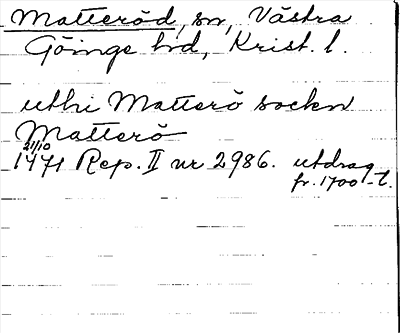 Matteröd, sn, Västra
Göinge hd, Krist. l.
uthi Matterö sockn
Matterö
21/10
1471 Rep. II nr 2986. utdrag
fr. 1700-t.